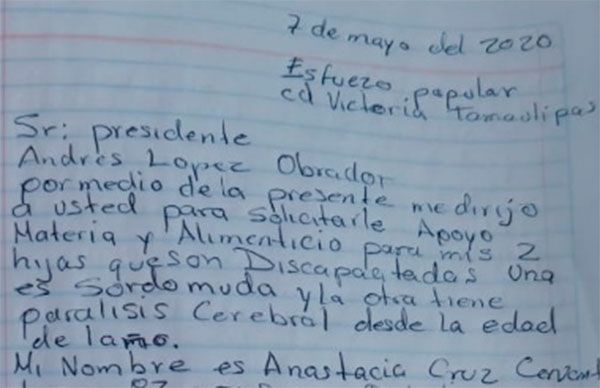 7 de mayo del 2020
Esfuezo popular
cd Victoria Tamaulipas
Sr: presidente
Andres Lopez Obrador
por medio de la presente me dirijo
a usted para solicitarle Apoyo
Materia y Alimenticio para mis 2
hijas que son Discapacitadas Una
es Sordo muda y la otra tiene
paralisis Cerebral desde la edad
de
Mi Nombre es Anastacia Cruz